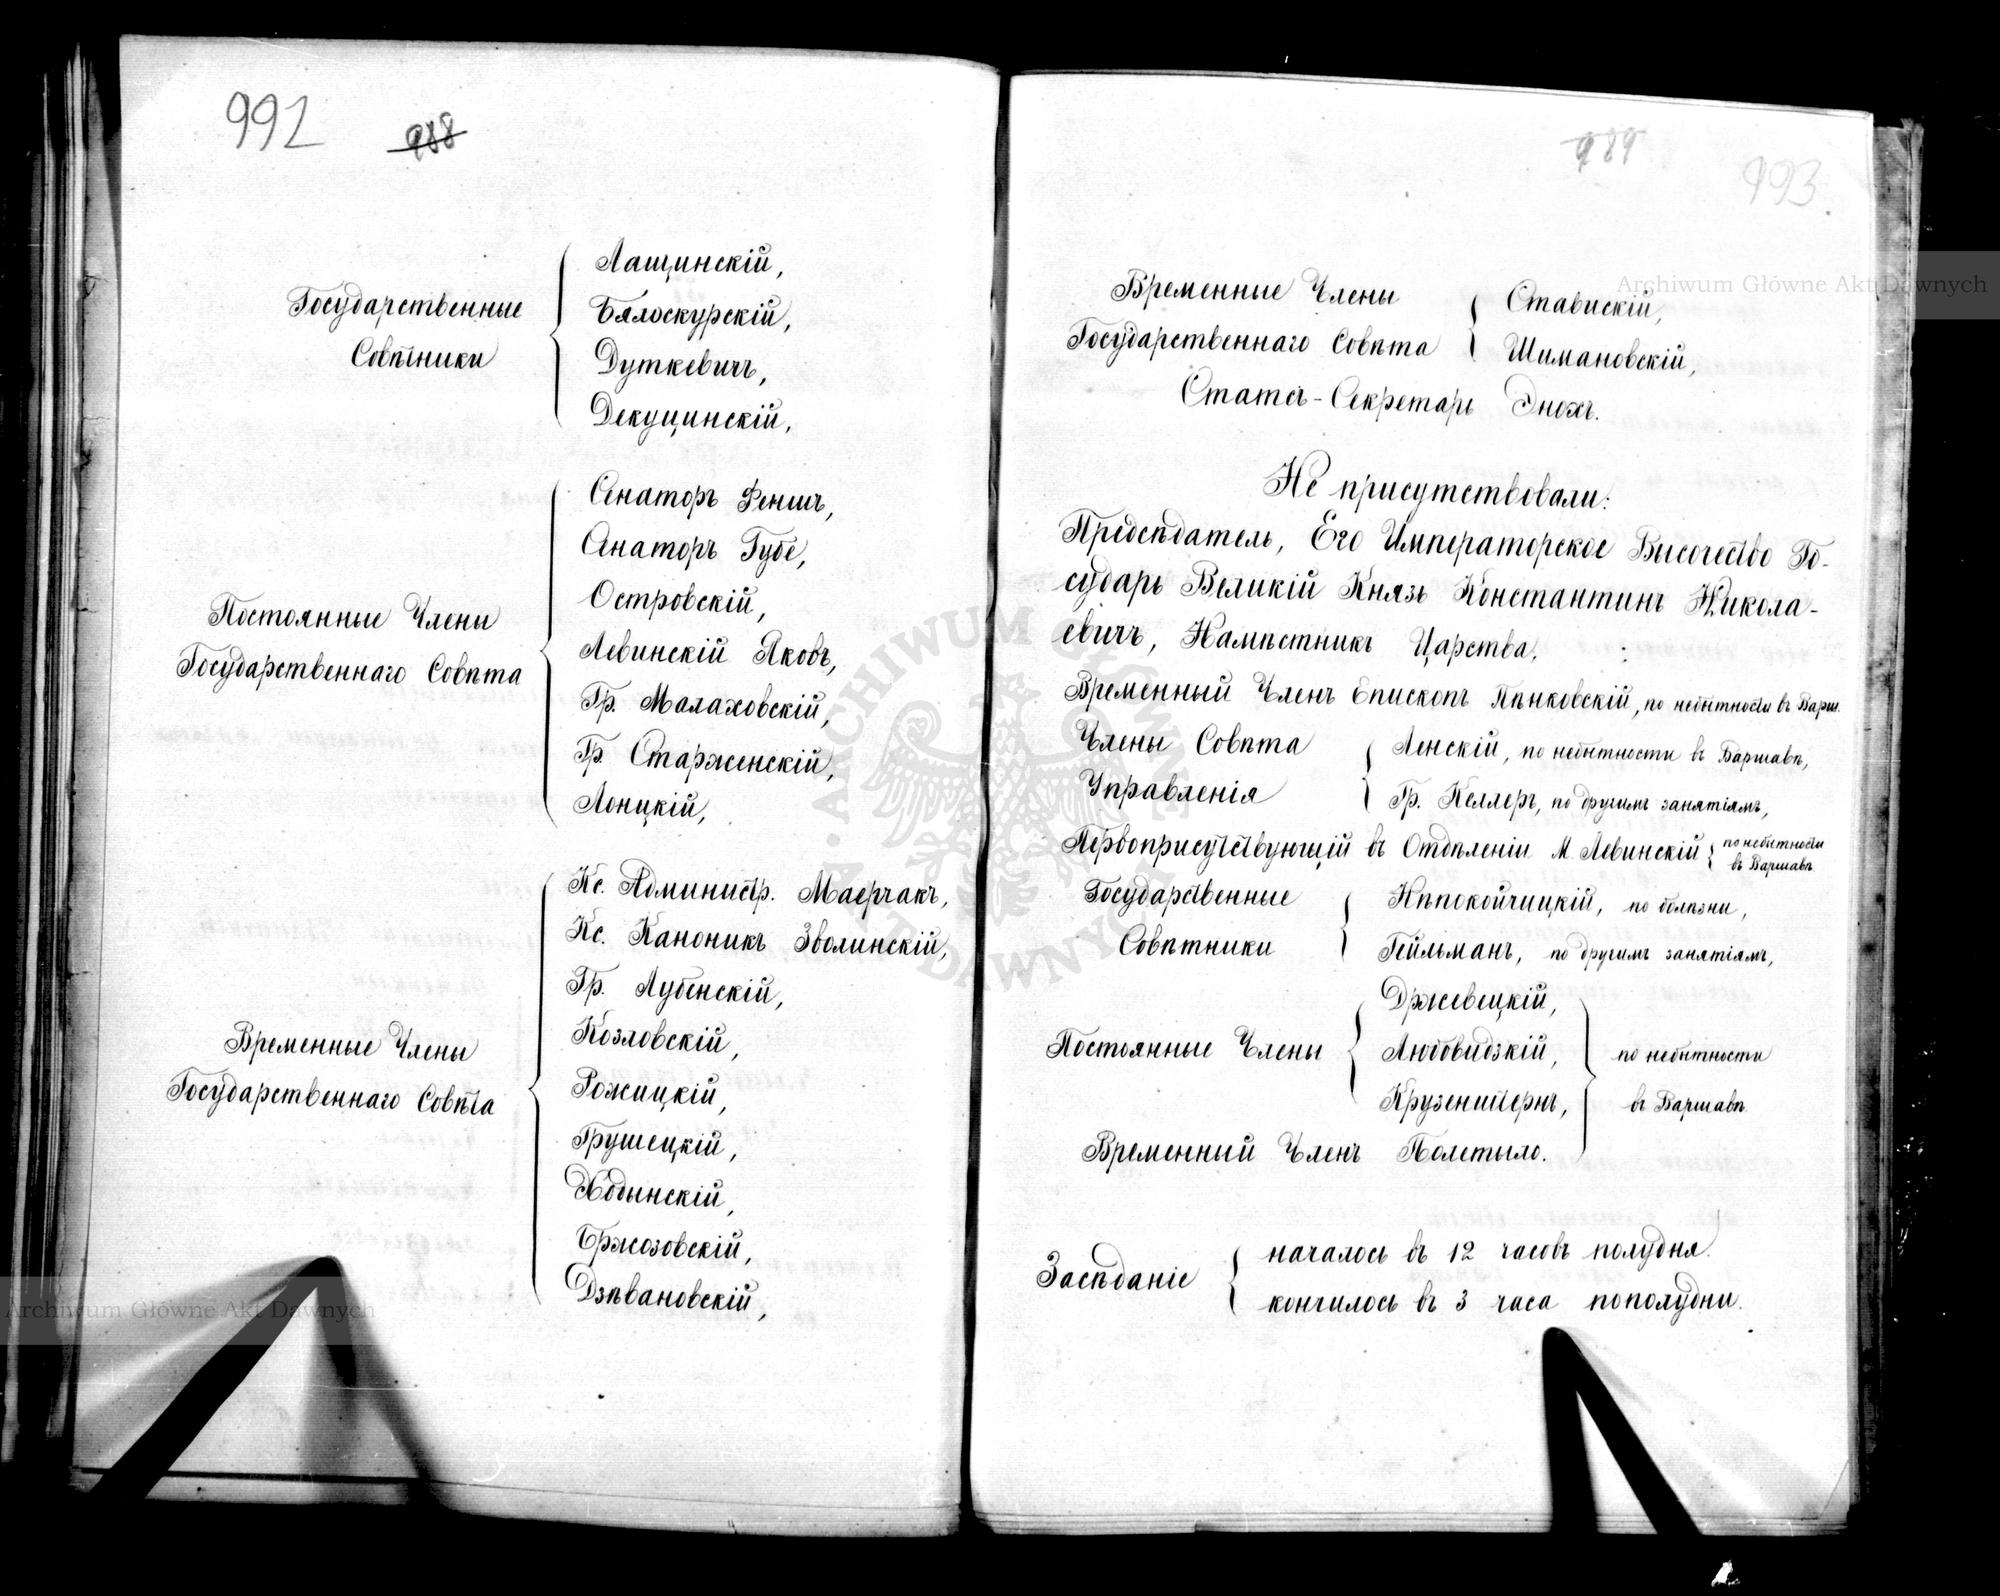 992
988
Государственные
Совѣтники
Лащинскій,
Бялоскурскій,
Дуткевичъ,
Декуцинскій,
Постоянные Члены
Государственнаго Совѣта
Сенаторъ Феншъ,
Сенаторъ Губе,
Островскій,
Левинскій Яковъ,
Гр. Малаховскій,
Гр. Старженскій,
Лонцкій,
Временные Члены
Государственнаго Совѣта
Кс. Администр. Маерчакъ,
Кс. Каноникъ Зволинскій,
Гр. Лубенскій,
Козловскій,
Рожицкій,
Грушецкій,
Хобрынскій,
Бржозовскій,
Дзѣвановскій,
989
993
Временные Члены
Государственнаго Совѣта
Ставискій,
Шимановскій,
Статсъ-Секретарь Энохъ.
Не присутствовали:
Предсѣдатель, Его Императорское Высочество Го-
сударь Великій Князь Константинъ Никола-
евичъ, Намѣстникъ Царства.
Временный Членъ Епископъ Пѣнковскій, по небытности въ Варш.
Члены Совѣта
Управленія
Ленскій, по небытности въ Варшавѣ,
Гр. Келлеръ, по другимъ занятіямъ,
Первоприсутствующій въ Отдѣленіи М. Левинскій по небытности
въ Варшавѣ
Государственные
Совѣтники
Нѣпокойчицкій, по болѣзни,
Гейльманъ, по другимъ занятіямъ,
Постоянные Члены
Држевецкій,
Любовидзкій,
Крузенштернъ,
по небытности
въ Варшавѣ
Временный Членъ Полетыло.
Засѣданіе
началось въ 12 часовъ полудня.
кончилось въ 3 часа пополудни.
Archiwum Główne Akt Dawnych
Archiwum Główne Akt Dawnych
ARCHIWUM GŁÓWNE AKT DAWNYCH